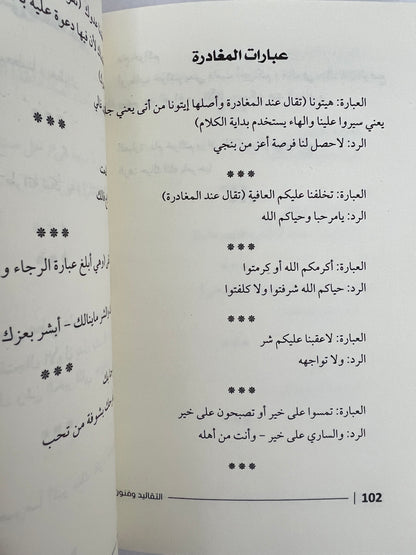 عبارات المغادرة
العبارة: هيتونا (تقال عند المغادرة وأصلها إيتونا من أتى يعني جا
يعني سيروا علينا والهاء يستخدم بداية الكلام)
الرد: لاحصل لنا فرصة أعز من بنجي
***
العبارة: تخلفنا عليكم العافية (تقال عند المغادرة)
الرد: يامرحبا وحياكم الله
***
العبارة: أكرمكم الله أو كرمتوا
الرد: حياكم الله شرفتوا ولا كلفتوا
***
العبارة: لاعقبنا عليكم شر
الرد: ولا تواجهه
***
العبارة: تمسوا على خير أو تصبحون على خير
الرد: والساري على خير – وأنت من أهله
***
102 | التقاليد وفنون
لأن فيها دعوة عليه
***
***
أبلغ عبارة الرجاء و
مابنالك – أبشر بعزك
***
بشوفة من تحب